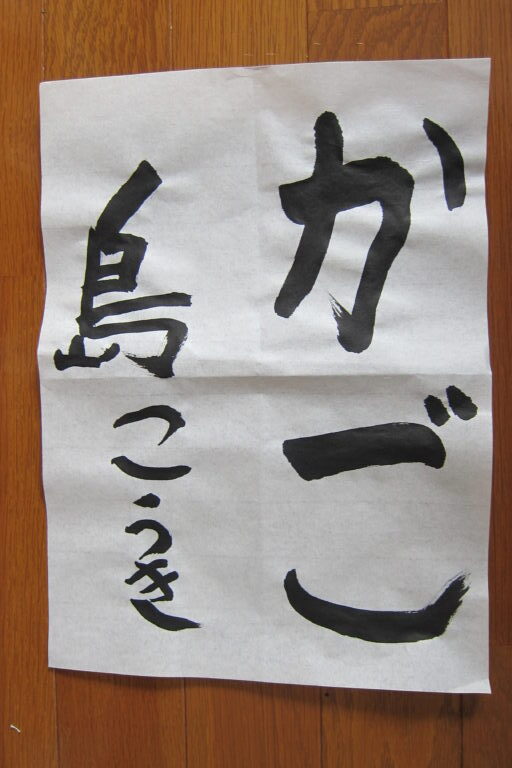 かご
島こうき